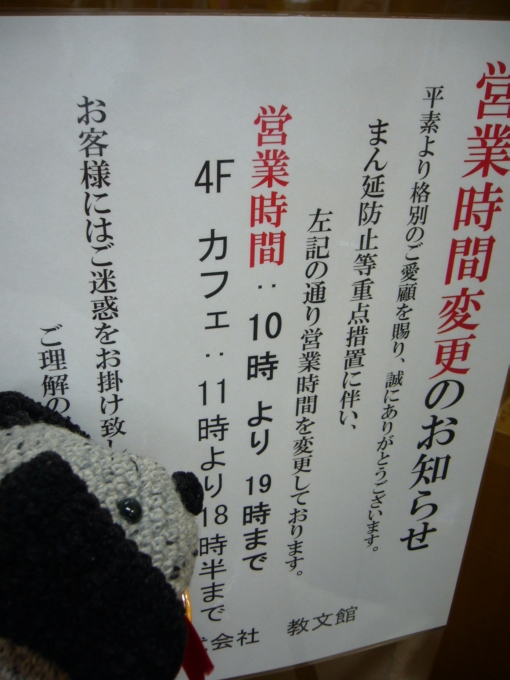 営業時間変更のお知らせ
平素より格別のご愛顧を賜り、誠にありがとうございます。
まん延防止等重点措置に伴い、
左記の通り営業時間を変更しております。
営業時間:10時より19時まで
4F カフェ:11時より18時半まで
お客様にはご迷惑をお掛け致し
ご理解の
会社 教文館